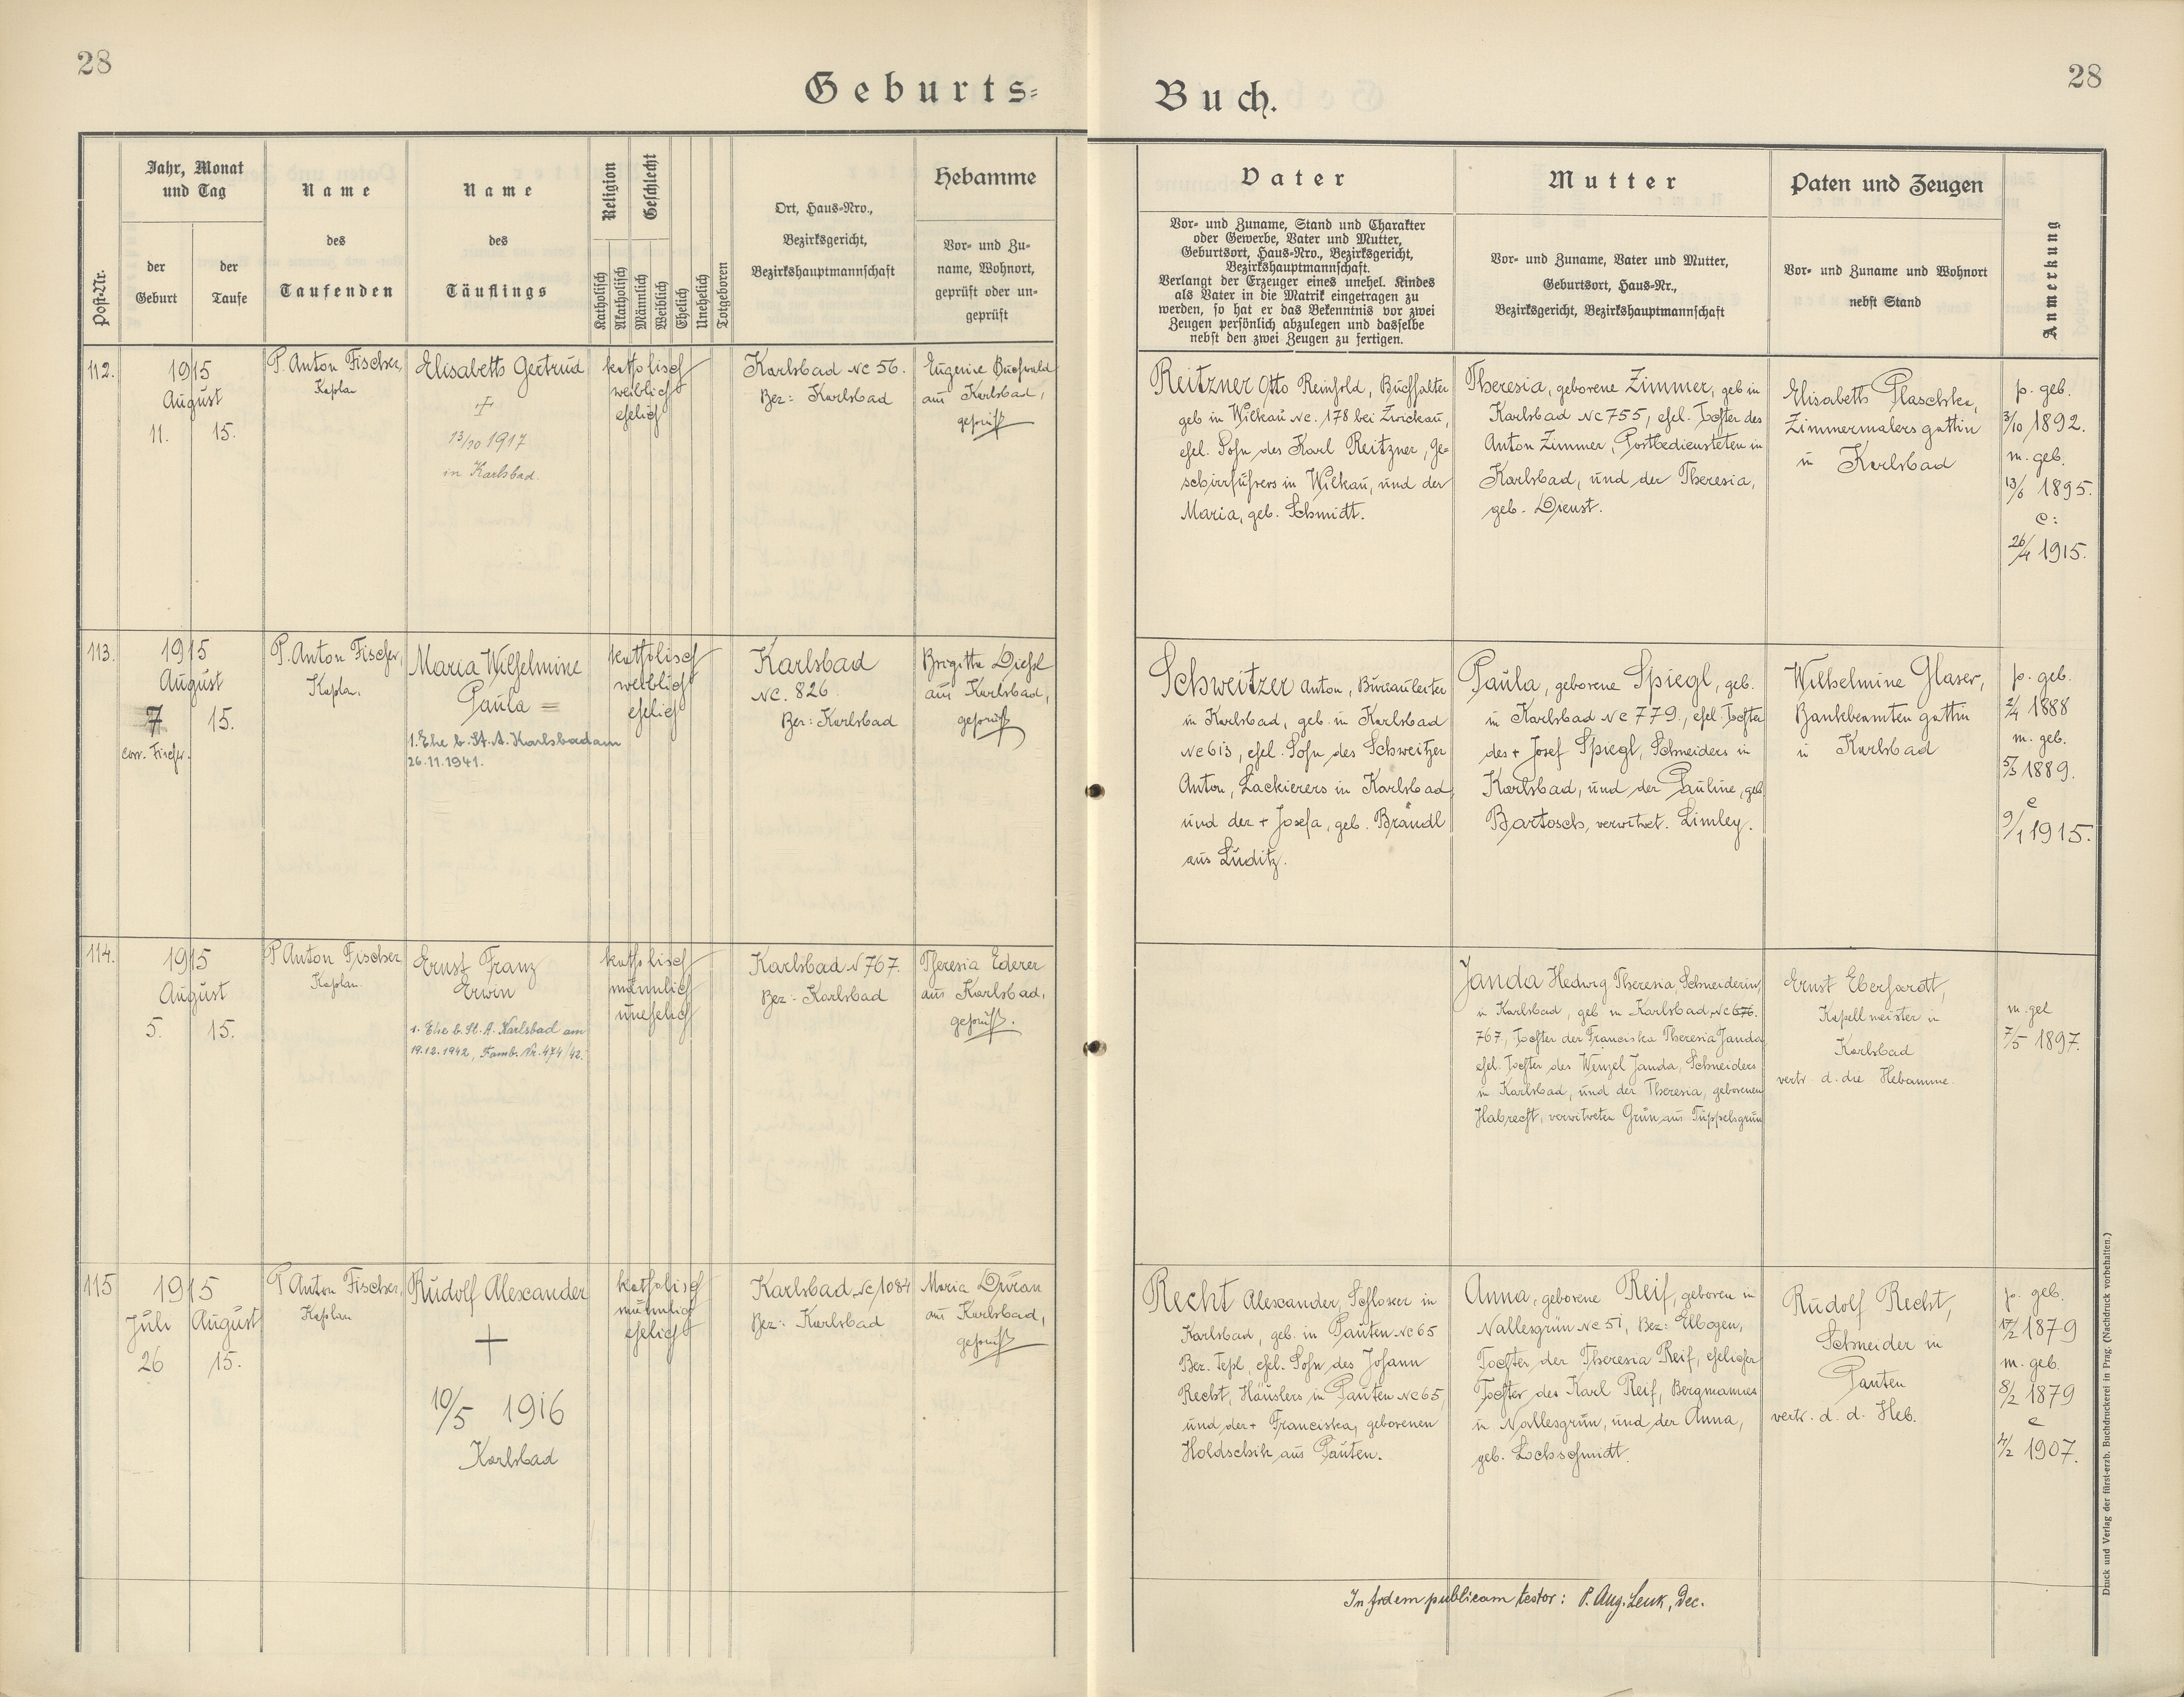 28
28
Geburts=
Buch.
Post-Nr.
Jahr, Monat
und Tag
der
Geburt
der
Taufe
Name
des
Taufenden
Name
des
Täuflings
Religion
Geschlecht
Katholisch
Akatholisch
Männlich
Weiblich
Ehelich
Unehelich
Totgeboren
Ort, Haus=Nro.,
Bezirksgericht,
Bezirkshauptmannschaft
Hebamme
Vor= und Zu=
name, Wohnort,
geprüft oder un=
geprüft
Vater
Vor= und Zuname, Stand und Charakter
oder Gewerbe, Vater und Mutter,
Geburtsort, Haus=Nro., Bezirksgericht,
Bezirkshauptmannschaft.
Verlangt der Erzeuger eines unehel. Kindes
als Vater in die Matrik eingetragen zu
werden, so hat er das Bekenntnis vor zwei
Zeugen persönlich abzulegen und dasselbe
nebst den zwei Zeugen zu fertigen.
Mutter
Vor= und Zuname, Vater und Mutter,
Geburtsort, Haus=Nr.,
Bezirksgericht, Bezirkshauptmannschaft
Paten und Zeugen
Vor= und Zuname und Wohnort
nebst Stand
Anmerkung
112.
1915
August
11. 15.
P. Anton Fischer,
Kaplan
Elisabeth Gertrud
†
13/10 1917
in Karlsbad.
katholisch
weiblich
ehelich
Karlsbad Nc 56.
Bez: Karlsbad
Eugenie Buchwald
aus Karlsbad,
geprüft
Reitzner Otto Reinhold, Buchhalter
geb in Wilkau Nc. 178 bei Zwickau,
ehel. Sohn des Karl Reitzner, Ge=
schirrführers in Wilkau, und der
Maria, geb. Schmidt.
Theresia, geborene Zimmer, geb in
Karlsbad Nc 755, ehel. Tochter des
Anton Zimmer, Postbediensteten in
Karlsbad, und der Theresia,
geb. Dienst.
Elisabeth Plaschke,
Zimmermalers gattin
in Karlsbad
p. geb.
3/10 1892.
m. geb.
13/6 1895.
c:
26/4 1915.
113.
1915
August
7 15.
corr. Fischer.
P. Anton Fischer,
Kaplan
Maria Wilhelmine
Paula =
1. Ehe b. St. A. Karlsbad am
26.11.1941.
katholisch
weiblich
ehelich
Karlsbad
Nc. 826
Bez: Karlsbad
Brigitta Diehl
aus Karlsbad,
geprüft
Schweitzer Anton, Bureauleiter
in Karlsbad, geb. in Karlsbad
Nc 613, ehel. Sohn des Schweitzer
Anton, Lackierers in Karlsbad,
und der + Josefa, geb. Brändl
aus Luditz.
Paula, geborene Spiegl, geb.
in Karlsbad Nc 779, ehel. Tochter
des + Josef Spiegl, Schneiders in
Karlsbad, und der Pauline, geb
Bartosch, verwitwet. Limley.
Wilhelmine Glaser,
Bankbeamten gattin
in Karlsbad
p. geb.
2/4 1888
m. geb.
5/3 1889.
c
9/1 1915.
114.
1915
August
5. 15.
P Anton Fischer
Kaplan.
Ernst Franz
Erwin
1. Ehe b. St. A. Karlsbad am
19.12.1942, Famb. Nr. 474/42.
katholisch
männlich
unehelich
Karlsbad N 767.
Bez: Karlsbad
Theresia Ederer
aus Karlsbad,
geprüft.
Janda Hedwig Theresia, Schneiderin,
in Karlsbad, geb in Karlsbad, Nc 676.
767, Tochter der Franciska Theresia Janda
ehel. Tochter des Wenzel Janda, Schneiders
in Karlsbad, und der Theresia, geborenen
Habrecht, verwitweten Grün aus Tüppelsgrün
Ernst Eberhardt,
Kapellmeister in
Karlsbad
vertr. d. die Hebamme.
m. geb
7/5 1897.
115
1915
Juli August
26 15.
P Anton Fischer,
Kaplan
Rudolf Alexander
†
10/5 1916
Karlsbad
katholisch
männlich
ehelich
Karlsbad, Nc 1084
Bez: Karlsbad
Maria Duran
aus Karlsbad,
geprüft
Recht Alexander, Schlosser in
Karlsbad, geb. in Pauten Nc 65
Bez. Tepl, ehel. Sohn des Johann
Recht, Häuslers in Pauten Nc 65,
und der + Franciska, geborenen
Holdschik aus Pauten.
Anna, geborene Reif, geboren in
Nallesgrün Nc 51, Bez: Elbogen,
Tochter der Theresia Reif, ehelicher
Tochter des Karl Reif, Bergmannes
in Nallesgrün, und der Anna,
geb. Lochschmidt.
Rudolf Recht,
Schneider in
Pauten
vertr. d. d. Heb.
p. geb.
17/2 1879
m. geb.
8/2 1879
c
4/2 1907.
In fidem publicam testor: P. Aug. Leuk, Dec.
Druck und Verlag der fürst-erzb. Buchdruckerei in Prag. (Nachdruck vorbehalten.)